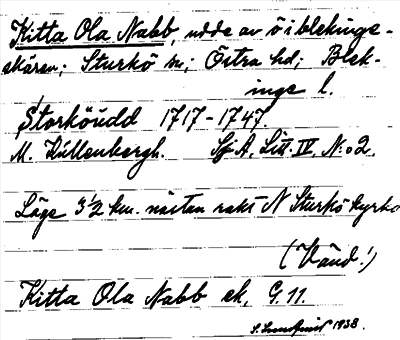 Kitta Ola Nabb, udde av ö i blekinge-
skären; Sturkö sn; Östra hd; Blek-
inge l.
Storköudd 1717-1747.
M. Küllenbergh. SjA, Litt. IV. No 2.
Läge 3 1/2 km. nästan rakt N Sturkö kyrka
(Vänd!)
Kitta Ola Nabb ek, G. 11.
1938.